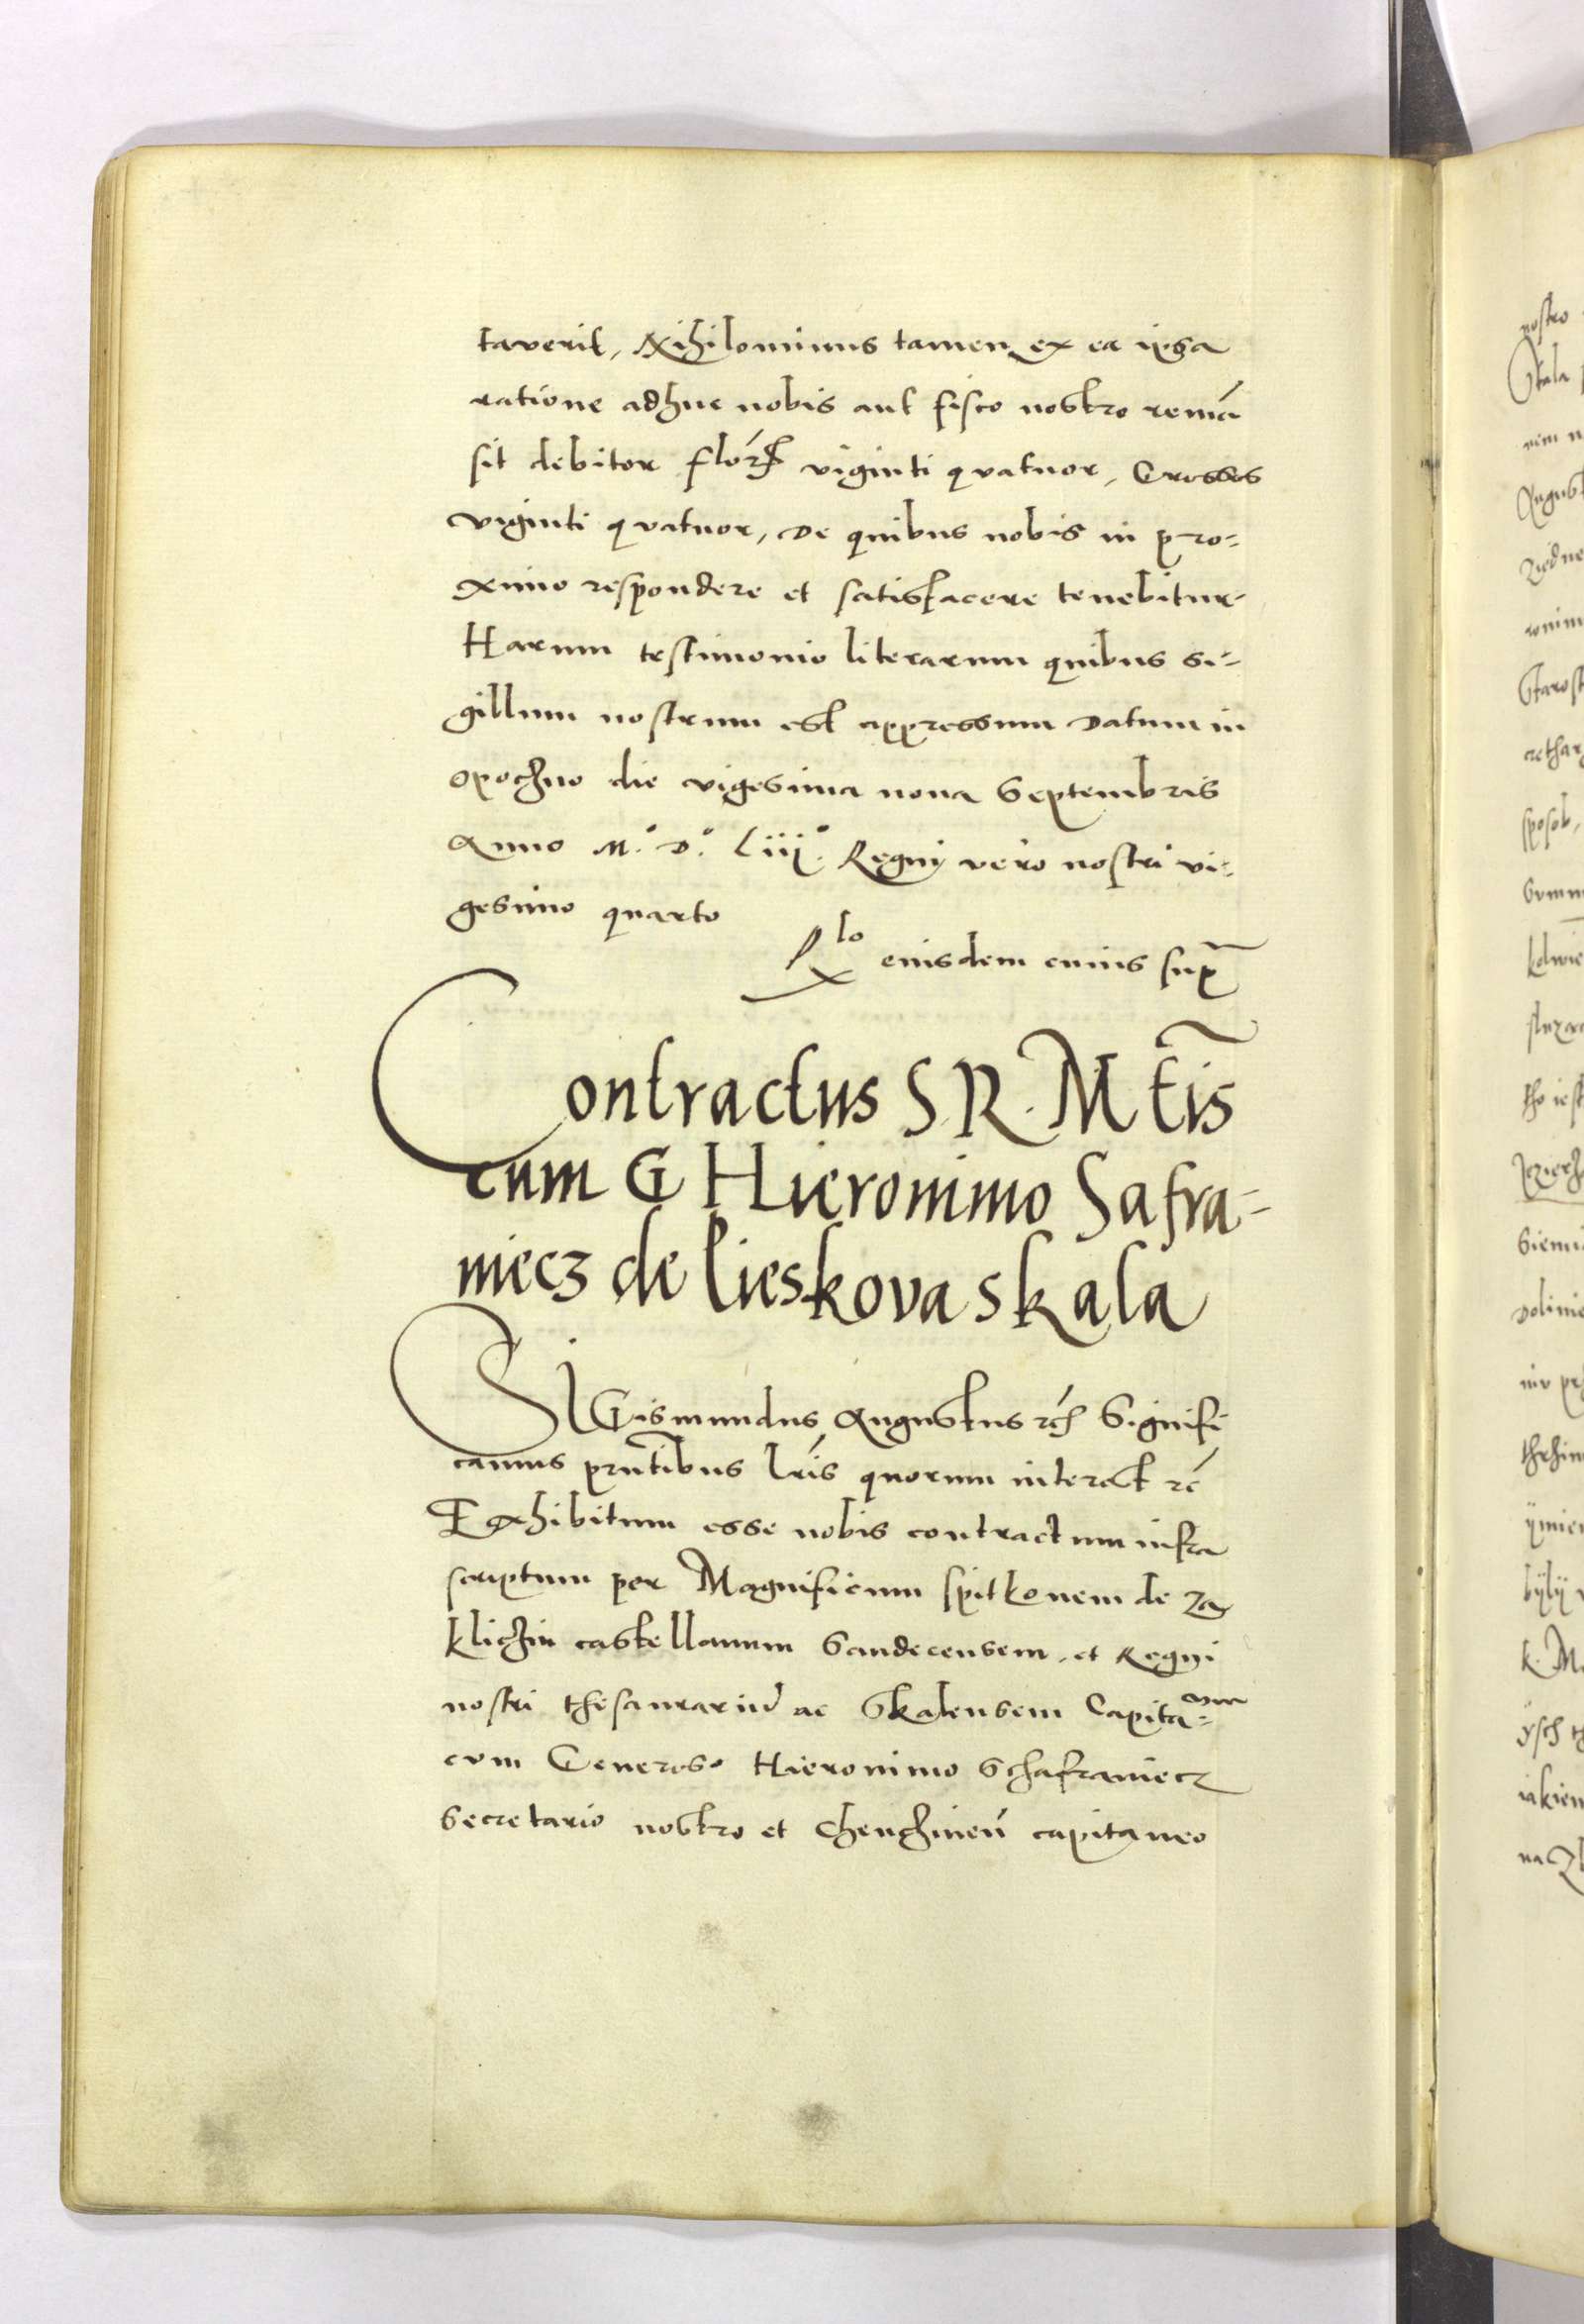 taverit, Nihilominus tamen ex ea ipsa
ratione adhuc nobis aut fisco nostro remã
sit debitor flor viginti quatuor, Grossos
viginti quatuor, de quibus nobis in pro=
ximo respondere et satisfacere tenebitur
Harum testimonio literarum quibus si=
gillum nostrum est appressum Datum in
opochno die vigesima nona Septembris
Anno M.º D.º Liiiº. Regni vero nostri vi=
gesimo quarto
Rlo eiusdem cuius sup
Contractus S. R. M tis
cum G Hieronimo Safra=
niecz de Pieskova skala
SIGismundus Augustus rch Signifi
camus pñtibus lris quorum interest rc
Exhibitum esse nobis contractum infra
scriptum per Magnificum spitkonem de Za
klichin castellanum Sandecensem, et Regni
nostri thesaurariũ ac Skalensem Capita=num
cum Generoso Hieronimo Schafraniecz
Secretario nostro et Chenchineñ capitaneo
nostro
Skala
Starost
sposob,
tho iest